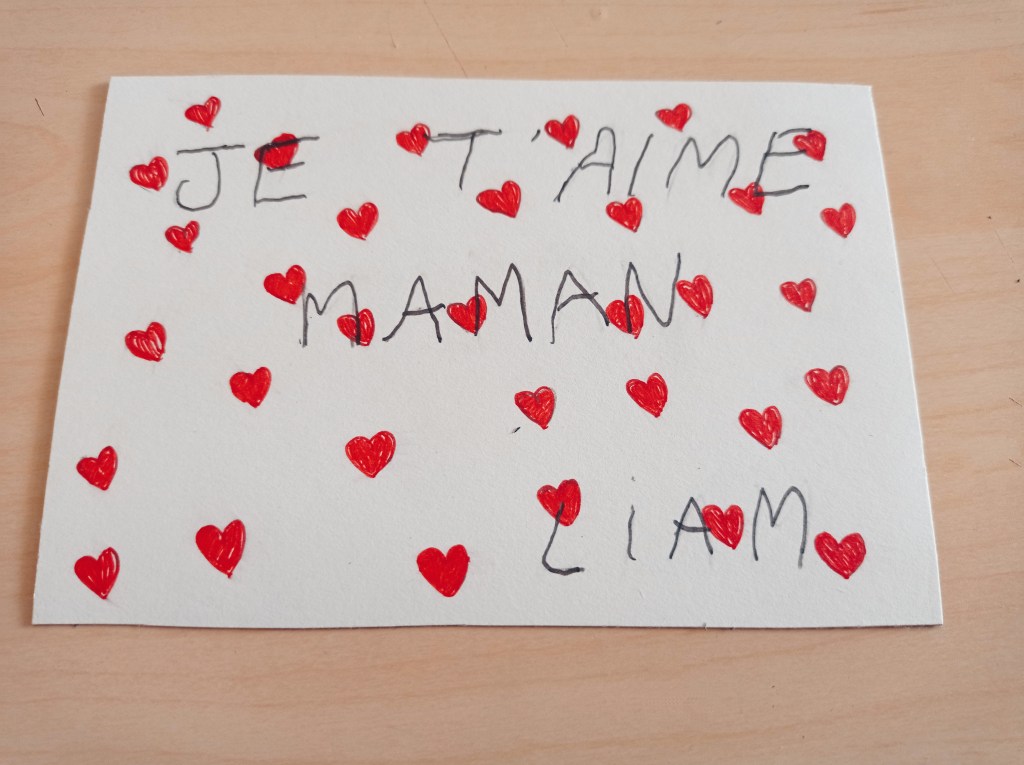 JE T'AIME
MAMAN
LIAM